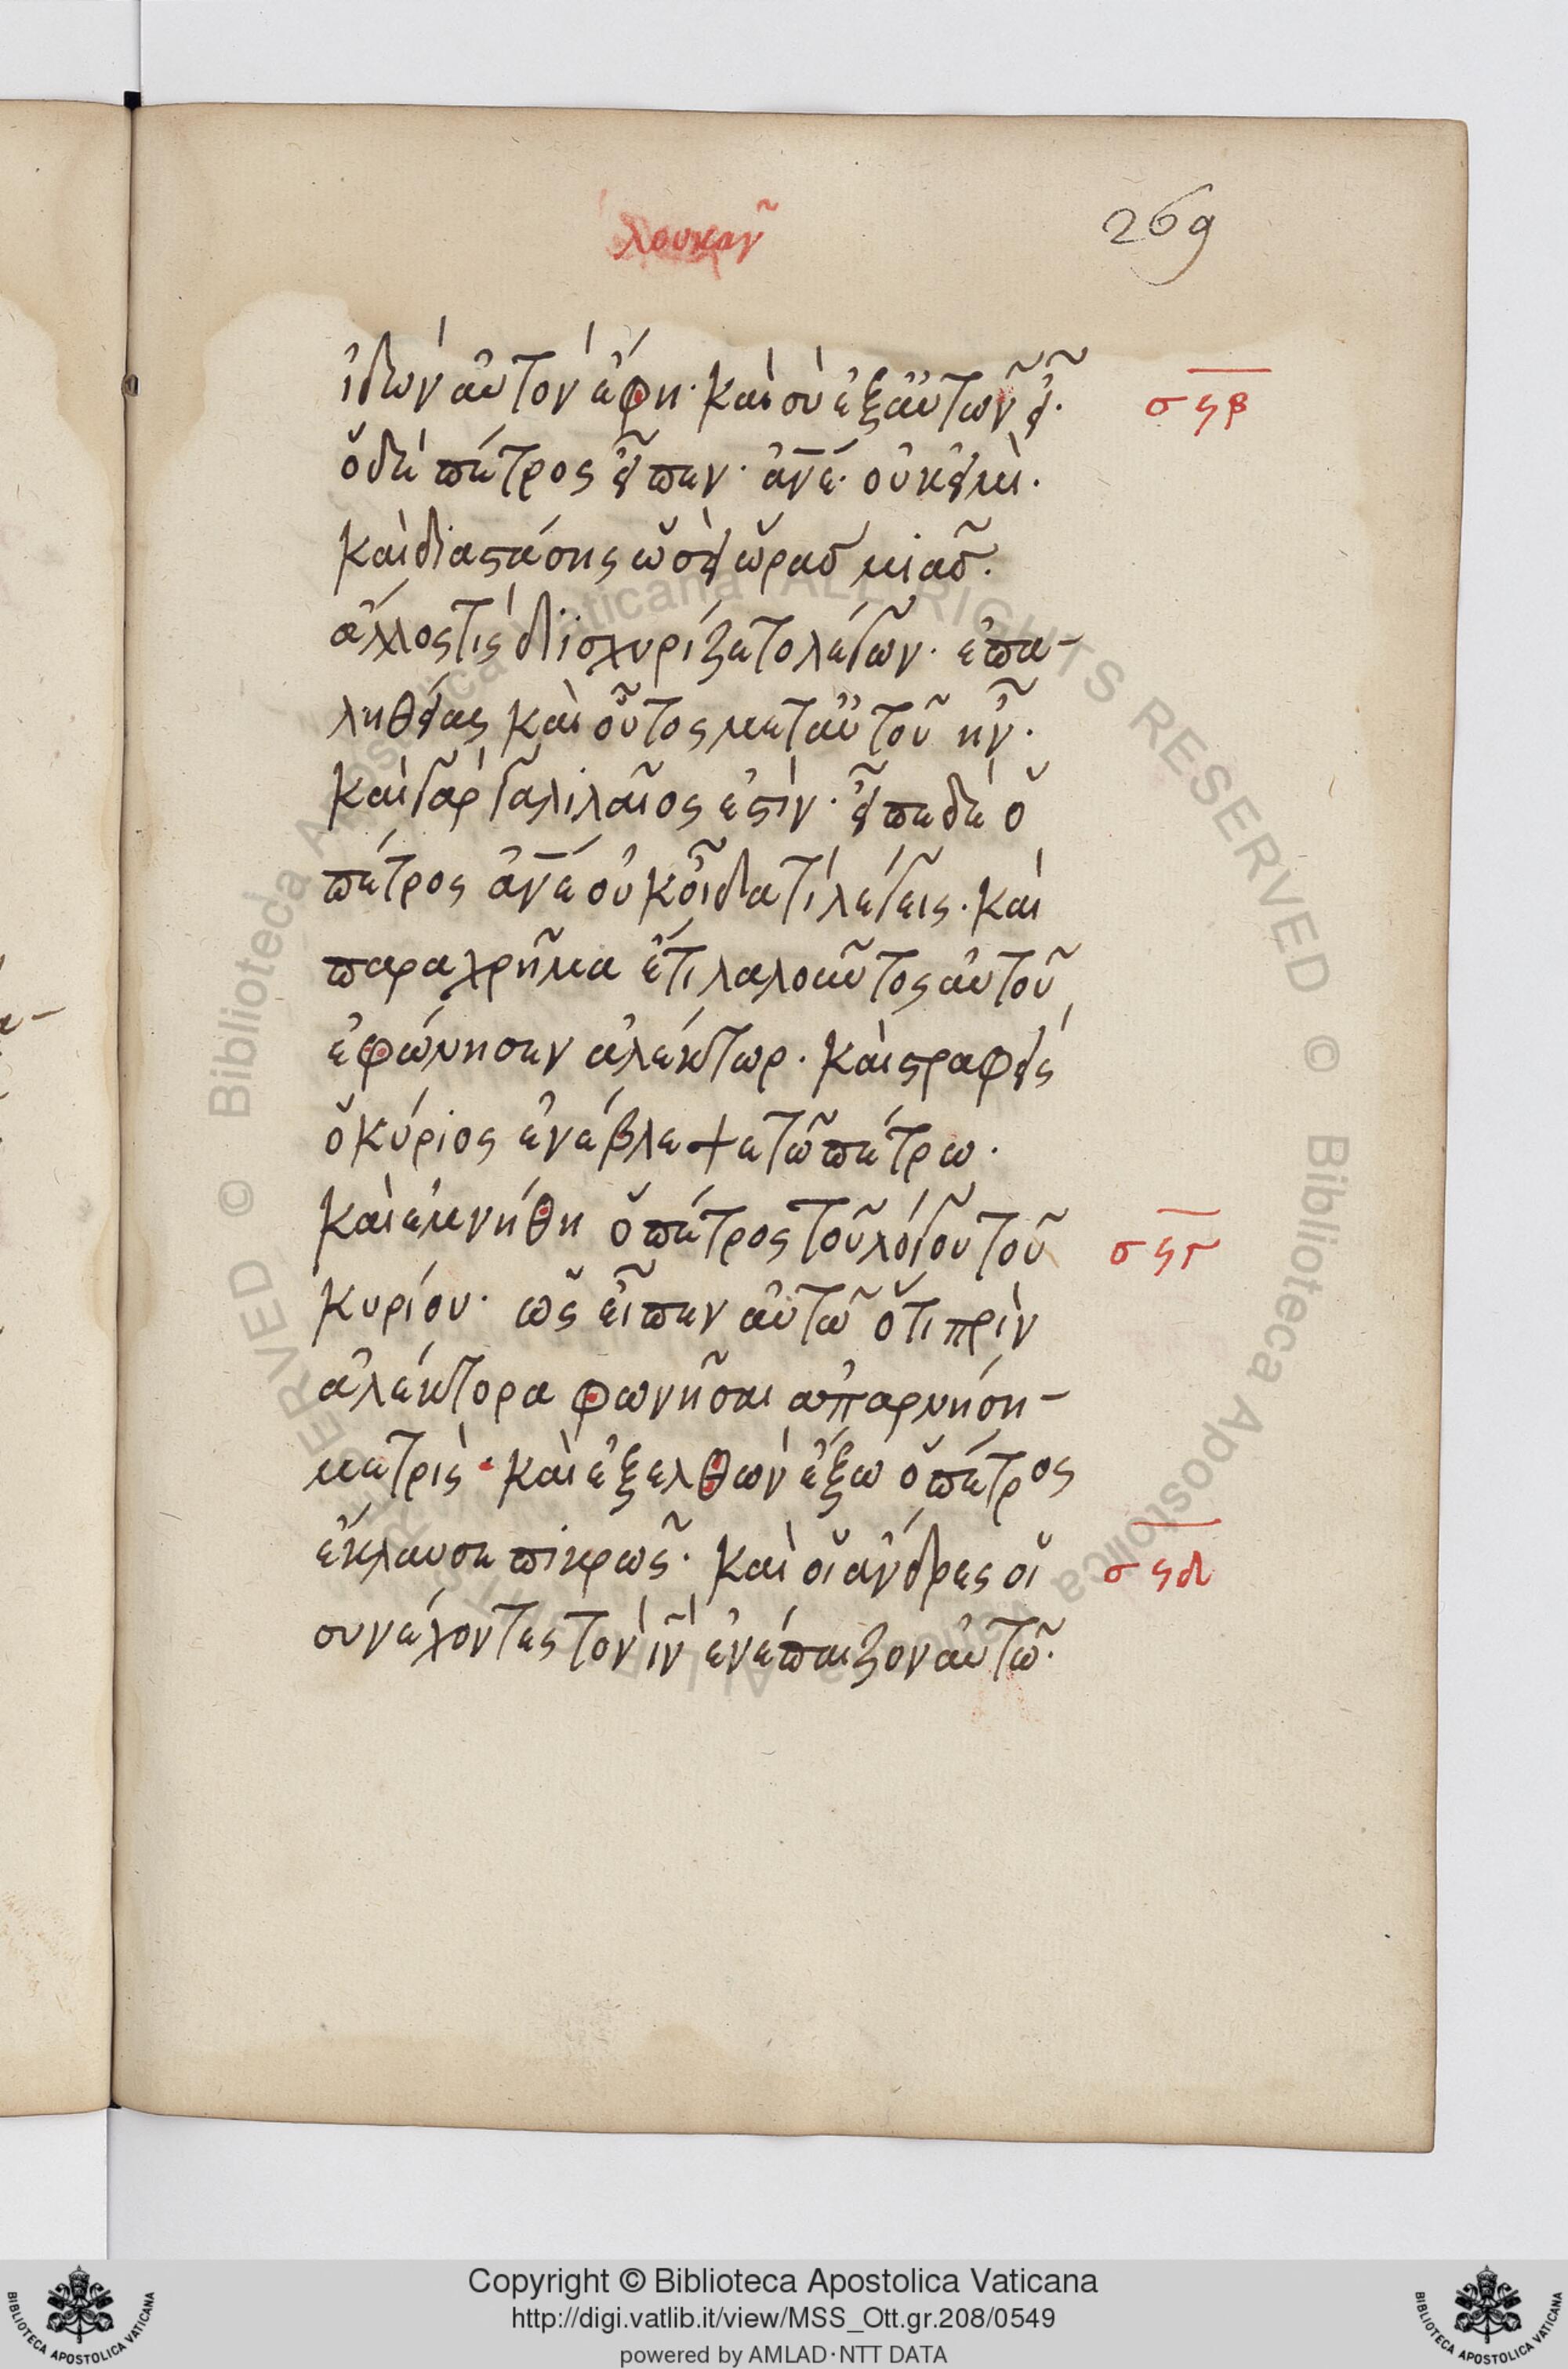 λουκαν
269
ἰδὼν αὐτὸν ἔφη· καὶ σὺ ἐξ αὐτῶν εἶ·
σϟβ
ὁ δὲ πέτρος εἶπεν· ἄν̅ε· οὐκ εἰμὶ·
καὶ διαστάσης ὡσεὶ ὥρασ μιᾶσ·
ἄλλος τὶς διϊσχυρίζετο λέγων· επα-
ληθείας καὶ οὗτος μετ αὐτοῦ ην͂·
καὶ γὰρ γαλιλαῖος ἐστὶν· εἶπε δὲ ὁ
πέτρος ἄν̅ε οὐκ οἶδα τί λέγεις· καὶ
παραχρῆμα ἔτι λαλοῦντος αὐτοῦ
ἐφώνησεν ἀλέκτωρ· καὶ στραφεὶς
ὁ κύριος ἐνέβλεψε τῶ πέτρω·
καὶ εμνήθη ὁ πέτρος τοῦ λόγου τοῦ
σϟγ
κυρίου· ὡς εἶπεν αὐτῶ ὅτι πρὶν
ἀλέκτορα φωνῆσαι ἀπαρνήση-
με τρὶς· καὶ ἐξελθὼν ἔξω ὁ πέτρος
ἔκλαυσε πικρῶς· καὶ οἱ ἄνδρες οἱ
σϟδ
συνέχοντες τὸν ιν̅ ἐνέπαιζον αὐτῶ·
© Biblioteca Apostolica Vaticana ALL RIGHTS RESERVED © Biblioteca Apostolica Vaticana ALL RIGHTS RESERVED
Copyright © Biblioteca Apostolica Vaticana
http://digi.vatlib.it/view/MSS_Ott.gr.208/0549
powered by AMLAD·NTT DATA
BIBLIOTECA APOSTOLICA VATICANA
BIBLIOTECA APOSTOLICA VATICANA